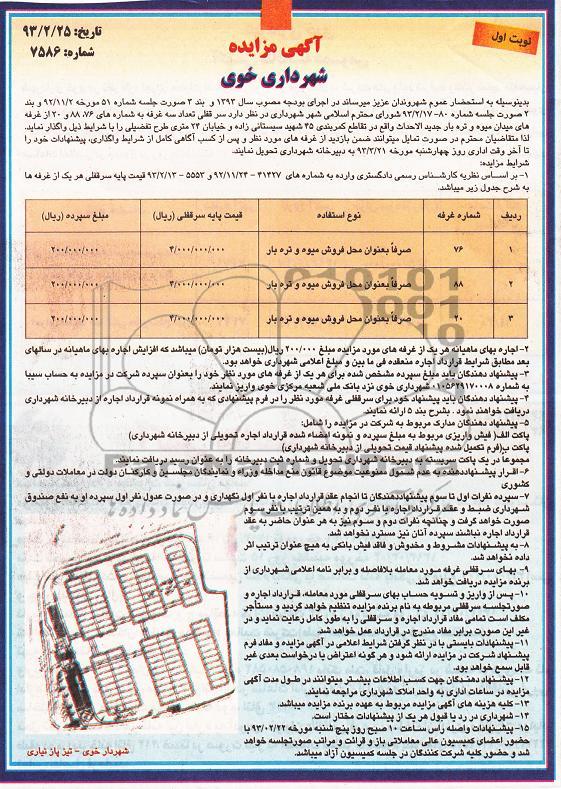 نوبت اول
تاریخ: ۹۳/۲/۲۵
شماره: ۷۵۸۶
آگهی مزایده
شهرداری خوی
بدینوسیله به استحضار عموم شهروندان عزیز میرساند در اجرای بودجه مصوب سال ۱۳۹۳ و بند ۳ صورت جلسه شماره ۵۱ مورخه ۹۲/۱۱/۲ و بند
۲ صورت جلسه شماره ۸۰- ۹۳/۲/۱۷ شورای محترم اسلامی شهر شهرداری در نظر دارد سر قفلی تعداد سه غرفه به شماره های ۷۶، ۸۸ و ۲۰ از غرفه
های میدان میوه و تره بار جدید الاحداث واقع در تقاطع کمربندی ۴۵ شهید سیستانی زاده و خیابان ۲۴ متری طرح تفضیلی را با شرایط ذیل واگذار نماید.
لذا متقاضیان محترم در صورت تمایل میتوانند ضمن بازدید از غرفه های مورد نظر و پس از کسب آگاهی کامل از شرایط واگذاری، پیشنهادات خود را
تا آخر وقت اداری روز چهارشنبه مورخه ۹۳/۳/۲۱ به دبیرخانه شهرداری تحویل نمایند.
شرایط مزایده:
۱- بر اساس نظریه کارشناس رسمی دادگستری وارده به شماره های ۴۱۴۲۷ - ۹۲/۱۱/۲۴ و ۵۵۵۳ - ۹۳/۲/۱۳ قیمت پایه سرقفلی هر یک از غرفه ها
به شرح جدول زیر میباشد.
ردیف شماره غرفه نوع استفاده قیمت پایه سرقفلی (ریال) مبلغ سپرده (ریال)
۱ ۷۶ صرفاً بعنوان محل فروش میوه و تره بار ۴/۰۰۰/۰۰۰/۰۰۰ ۲۰۰/۰۰۰/۰۰۰
۲ ۸۸ صرفاً بعنوان محل فروش میوه و تره بار ۴/۰۰۰/۰۰۰/۰۰۰ ۲۰۰/۰۰۰/۰۰۰
۳ ۲۰ صرفاً بعنوان محل فروش میوه و تره بار ۴/۰۰۰/۰۰۰/۰۰۰ ۲۰۰/۰۰۰/۰۰۰
۲- اجاره بهای ماهیانه هر یک از غرفه های مورد مزایده مبلغ ۲۰۰/۰۰۰ ریال(بیست هزار تومان) میباشد که افزایش اجاره بهای ماهیانه در سالهای
بعد مطابق شرایط قرارداد اجاره منعقده فی ما بین و مبلغ اعلامی شهرداری خواهد بود.
۳- پیشنهاد دهندگان باید مبلغ سپرده مشخص شده برای هر یک از غرفه های مورد نظر خود را بعنوان سپرده شرکت در مزایده به حساب سیبا
به شماره ۰۱۰۵۶۲۹۱۷۰۰۰۸ شهرداری خوی نزد بانک ملی شعبه مرکزی خوی واریز نمایند.
۴- پیشنهاد دهندگان باید پیشنهاد خود برای سرقفلی غرفه مورد نظر را در فرم پیشنهادی که به همراه نمونه قرارداد اجاره از دبیرخانه شهرداری
دریافت خواهند نمود. بشرح بند ۵ ارائه نمایند
۵- پیشنهاد دهندگان مدارک مربوط به شرکت در مزایده را شامل:
پاکت الف( فیش واریزی مربوط به مبلغ سپرده و نمونه امضاء شده قرارداد اجاره تحویلی از دبیرخانه شهرداری)
پاکت ب(فرم تکمیل شده پیشنهاد قیمت تحویلی از دبیرخانه شهرداری)
مجموعاً در یک پاکت سربسته به دبیرخانه شهرداری تحویل و شماره ثبت دبیرخانه را به عنوان رسید دریافت نمایند.
۶- اقرار پیشنهاددهنده به عدم شمول ممنوعیت موضوع قانون منع مداخله وزراء و نمایندگان مجلسین و کارکنان دولت در معاملات دولتی و
کشوری
۷- سپرده نفرات اول تا سوم پیشنهاددهندگان تا انجام عقدقرارداد اجاره با نفر اول نگهداری و در صورت عدول نفر اول سپرده او به نفع صندوق
شهرداری ضبط و عقد قرارداد اجاره با نفر دوم و به همین ترتیب با نفر سوم
صورت خواهد گرفت و چنانچه نفرات دوم و سوم نیز به هر عنوان حاضر به عقد
قرارداد اجاره نباشند سپرده آنان نیز مسترد نخواهد شد.
۸- به پیشنهادات مشروط و مخدوش و فاقد فیش بانکی به هیچ عنوان ترتیب اثر
داده نخواهد شد.
۹- بهای سرقفلی غرفه مورد معامله بلافاصله و برابر نامه اعلامی شهرداری از
برنده مزایده دریافت خواهد شد.
۱۰- پس از واریز و تسویه حساب بهای سرقفلی مورد معامله، قرارداد اجاره و
صورتجلسه سرقفلی مربوطه به نام برنده مزایده تنظیم خواهد گردید و مستأجر
مکلف است تمامی مفاد قرارداد اجاره و سرقفلی را به طور کامل رعایت نماید و در
غیر این صورت برابر مفاد مندرج در قرارداد عمل خواهد شد.
۱۱- پیشنهادات بایستی با در نظر گرفتن شرایط اعلامی در آگهی مزایده و مفاد فرم
پیشنهاد شرکت در مزایده ارائه شود و هر گونه اعتراض یا درخواست بعدی غیر
قابل سمع خواهد بود.
۱۲- پیشنهاد دهندگان جهت کسب اطلاعات بیشتر میتوانند در طول مدت آگهی
مزایده در ساعات اداری به واحد املاک شهرداری مراجعه نمایند.
۱۳- کلیه هزینه های آگهی مزایده مربوط به عهده برنده مزایده میباشد.
۱۴- شهرداری در رد یا قبول هر یک از پیشنهادات مختار است.
۱۵- پیشنهادات واصله راس ساعت ۱۰ صبح روز پنج شنبه مورخه ۹۳/۰۳/۲۲ با
حضور اعضای کمیسیون عالی معاملاتی باز و قرائت و مراتب صورتجلسه خواهد
شد و حضور کلیه شرکت کنندگان در جلسه کمیسیون آزاد میباشد.
شهردار خوی - تیز پاز نیاری